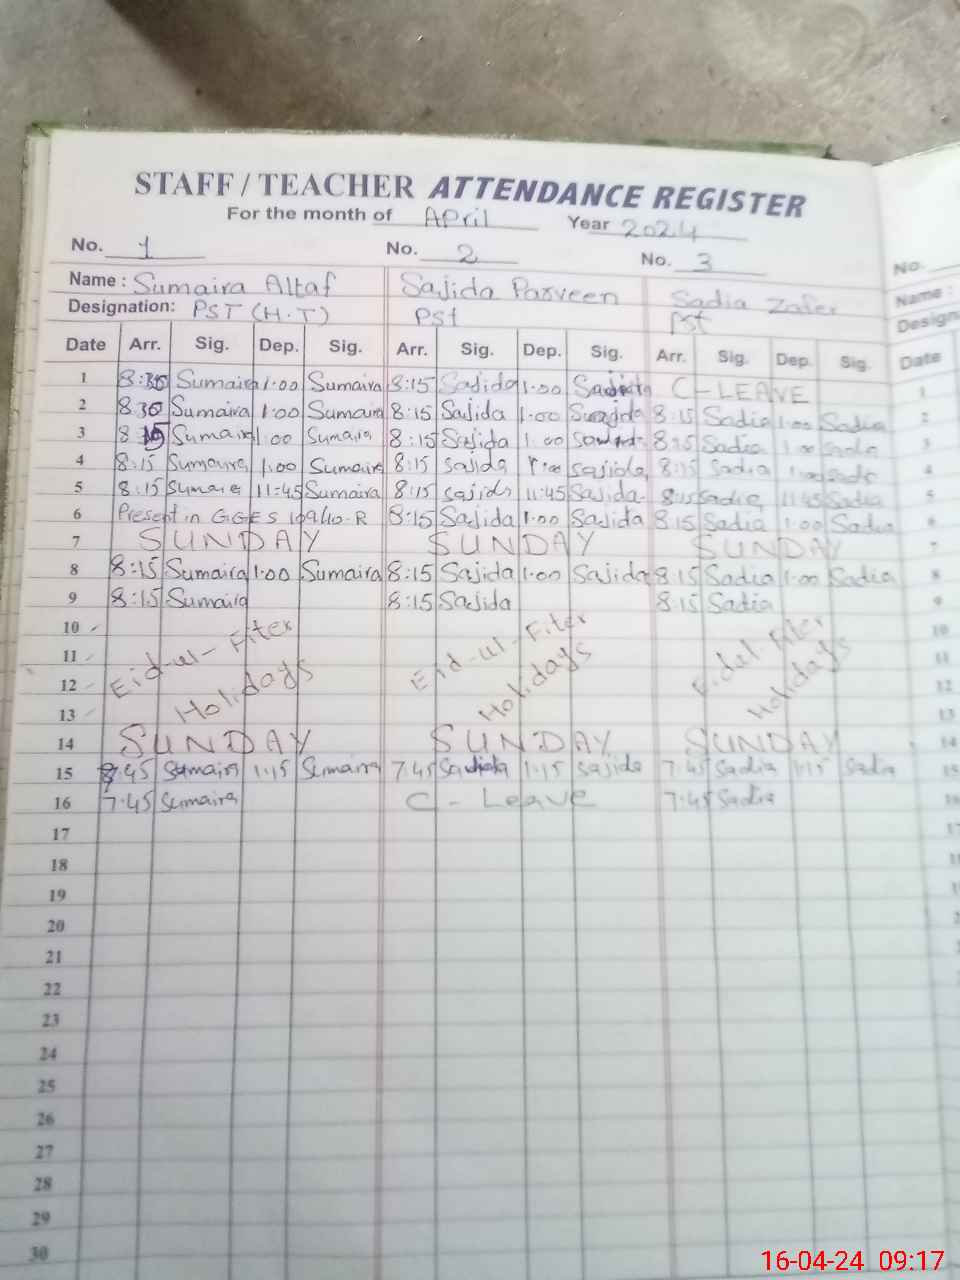 STAFF / TEACHER ATTENDANCE REGISTER
For the month of April Year 2024
No. 1 No. 2 No. 3 No.
Name : Sumaira Altaf Sajida Parveen Sadia Zafer Name :
Designation: PST (H.T) PST PST Design
Date Arr. Sig. Dep. Sig. Arr. Sig. Dep. Sig. Arr. Sig. Dep. Sig. Date
1 8:30 Sumaira 1:00 Sumaira 8:15 Sajida 1:00 C-LEAVE 1
2 8 30 Sumaira 1:00 Sumaira 8:15 Sajida 1:00 8:15 Sadia 1:00 Sadia 2
3 8 15 Sumaira 1:00 Sumaira 8:15 Sajida 1:00 8:15 Sadia 1:00 Sadia 3
4 8:15 Sumaira 1:00 Sumaira 8:15 Sajida 1:00 Sajida 8:15 Sadia 1:00 4
5 8:15 11:45 Sumaira 8:15 Sajida 11:45 Sajida 8:15 Sadia 11:45 Sadia 5
6 Present in GGES 8:15 Sajida 1:00 Sajida 8:15 Sadia 1:00 Sadia 6
7 SUNDAY SUNDAY SUNDAY 7
8 8:15 Sumaira 1:00 Sumaira 8:15 Sajida 1:00 Sajida 8:15 Sadia 1:00 Sadia 8
9 8:15 Sumaira 8:15 Sajida 8:15 Sadia 9
10 Eid-ul-Fiter Eid-ul-Fiter Eidul Fiter 10
11 Holidays Holidays Holidays 11
12 12
13 13
14 SUNDAY SUNDAY SUNDAY 14
15 Sumaira 1:15 Sumaira 7:45 1:15 Sajida 7:45 Sadia 1:15 Sadia 15
16 7:45 Sumaira C - Leave 7:45 Sadia 16
17
18
19
20
21
22
23
24
25
26
27
28
29
30
16-04-24 09:17